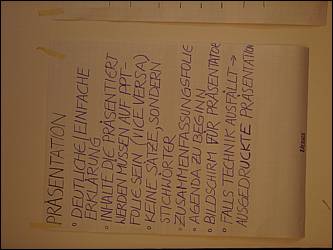 PRÄSENTATION
° DEUTLICHE / EINFACHE
ERKLÄRUNG
° INHALTE DIE PRÄSENTIERT
WERDEN MÜSSEN AUF PPT-
FOLIE SEIN (VICE VERSA)
° KEINE SÄTZE, SONDERN
STICHWÖRTER
° ZUSAMMENFASSUNGSFOLIE
° AGENDA ZU BEGINN
° BILDSCHIRM FÜR PRÄSENTATOR
° FALLS TECHNIK AUSFÄLLT →
AUSGEDRUCKTE PRÄSENTATION